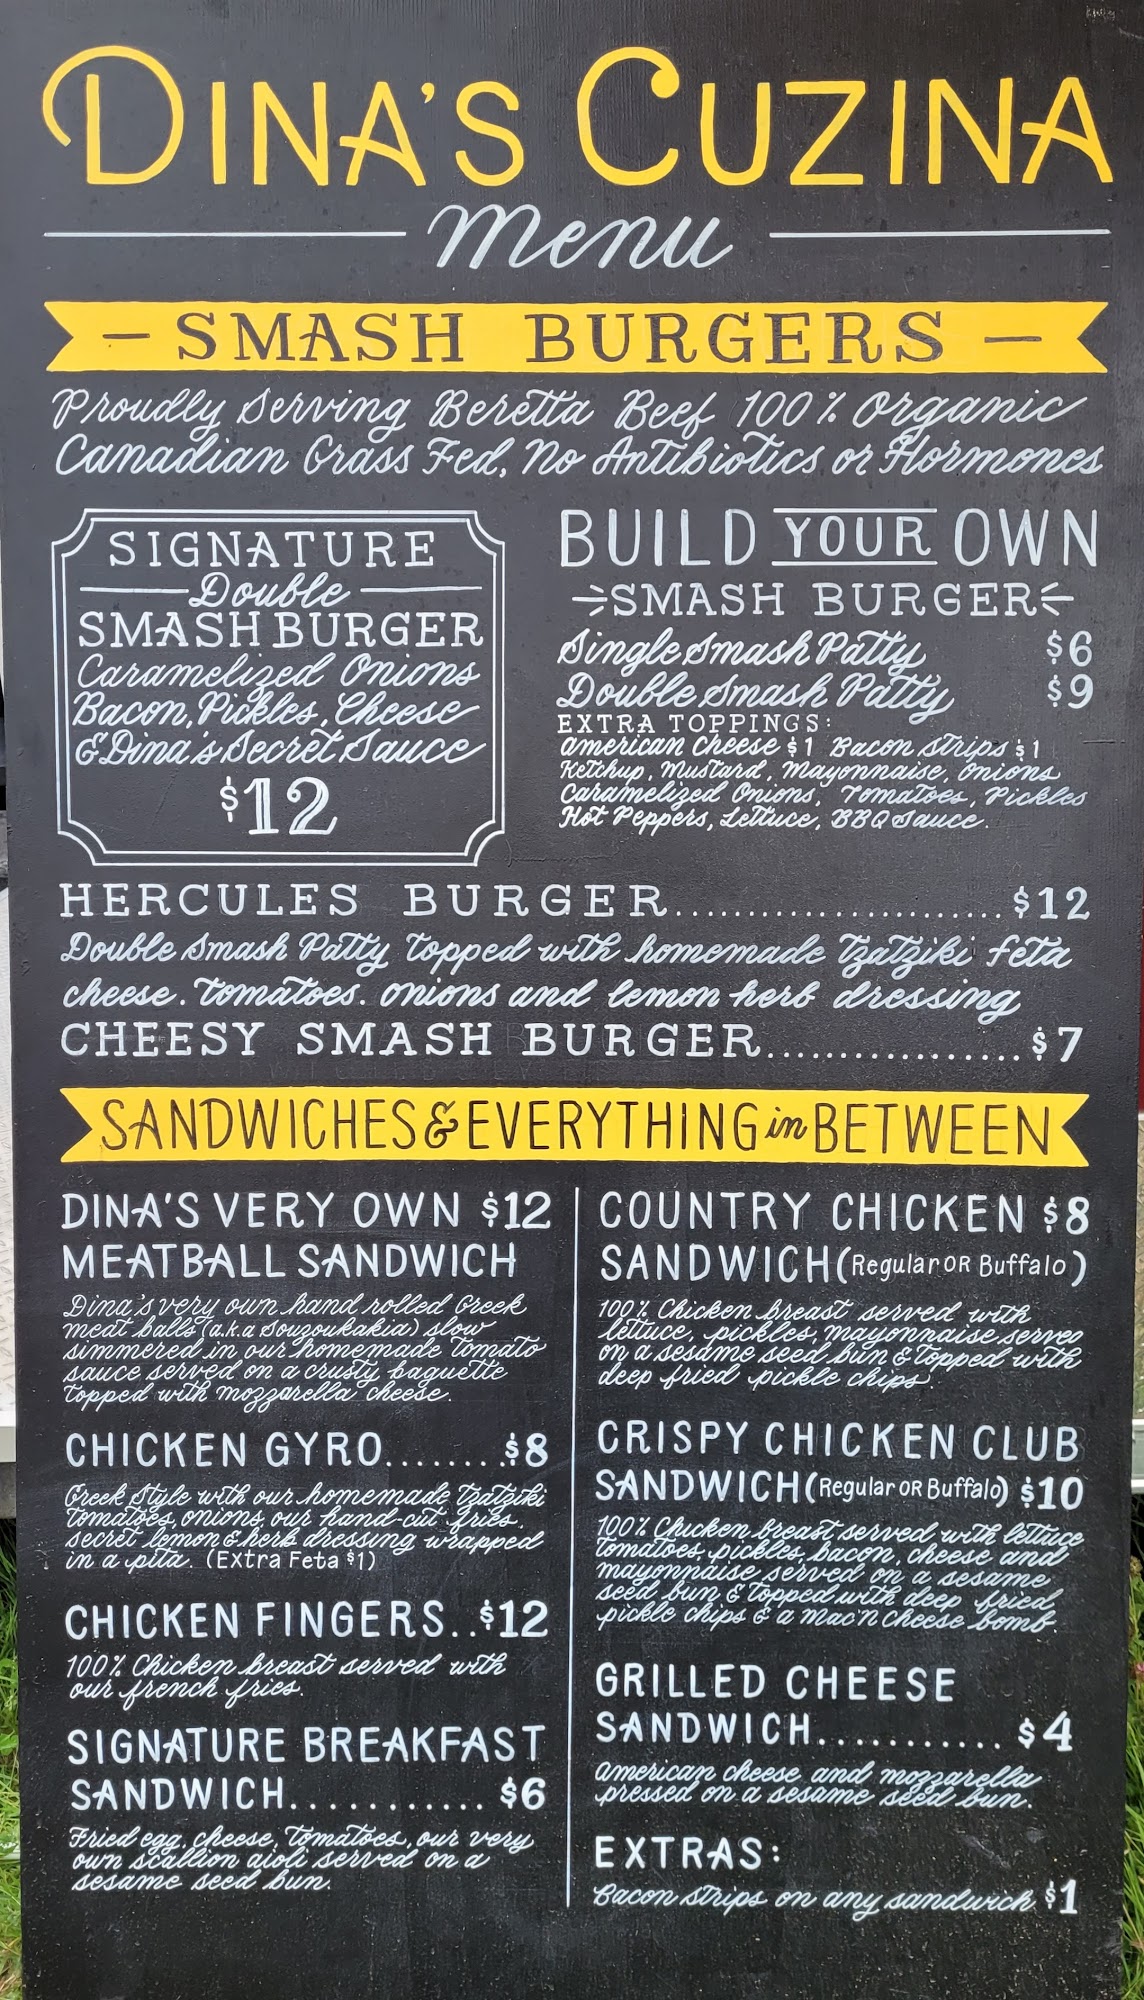 DINA'S CUZINA
Menu
- SMASH BURGERS -
Proudly Serving Beretta Beef 100% Organic
Canadian Grass Fed, No Antibiotics or Hormones
SIGNATURE
Double
SMASH BURGER
Caramelized Onions
Bacon, Pickles, Cheese
& Dina's Secret Sauce
$12
BUILD YOUR OWN
SMASH BURGER
Single Smash Patty $6
Double Smash Patty $9
EXTRA TOPPINGS:
American Cheese $1 Bacon Strips $1
Ketchup, Mustard, Mayonnaise, Onions
Caramelized Onions, Tomatoes, Pickles
Hot Peppers, Lettuce, BBQ Sauce.
HERCULES BURGER....................... $12
Double Smash Patty topped with homemade Tzatziki feta
cheese. tomatoes. onions and lemon herb dressing
CHEESY SMASH BURGER.................. $7
SANDWICHES & EVERYTHING in BETWEEN
DINA'S VERY OWN $12
MEATBALL SANDWICH
Dina's very own hand rolled Greek
meat balls (a.k.a Souzoukakia) slow
simmered in our homemade tomato
sauce served on a crusty baguette
topped with mozzarella cheese.
CHICKEN GYRO........$8
Greek Style with our homemade Tzatziki
Tomatoes, onions, our hand-cut fries,
secret lemon & herb dressing wrapped
in a pita. (Extra Feta $1)
CHICKEN FINGERS..$12
100% Chicken breast served with
our french fries.
SIGNATURE BREAKFAST
SANDWICH........... $6
Fried egg, cheese, Tomatoes, our very
own scallion aioli served on a
sesame seed bun.
COUNTRY CHICKEN $8
SANDWICH (Regular OR Buffalo)
100% Chicken breast served with
lettuce, pickles, mayonnaise served
on a sesame seed bun & Topped with
deep fried pickle chips.
CRISPY CHICKEN CLUB
SANDWICH (Regular OR Buffalo) $10
100% Chicken breast served with lettuce
tomatoes, pickles, bacon, cheese and
mayonnaise served on a sesame
seed bun & Topped with deep fried
pickle chips & a Mac'n cheese bomb.
GRILLED CHEESE
SANDWICH........... $4
American cheese and mozzarella
pressed on a sesame seed bun.
EXTRAS:
Bacon strips on any sandwich $1